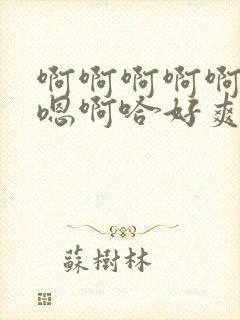 啊啊啊啊啊
嗯啊哈好爽
蘇樹林